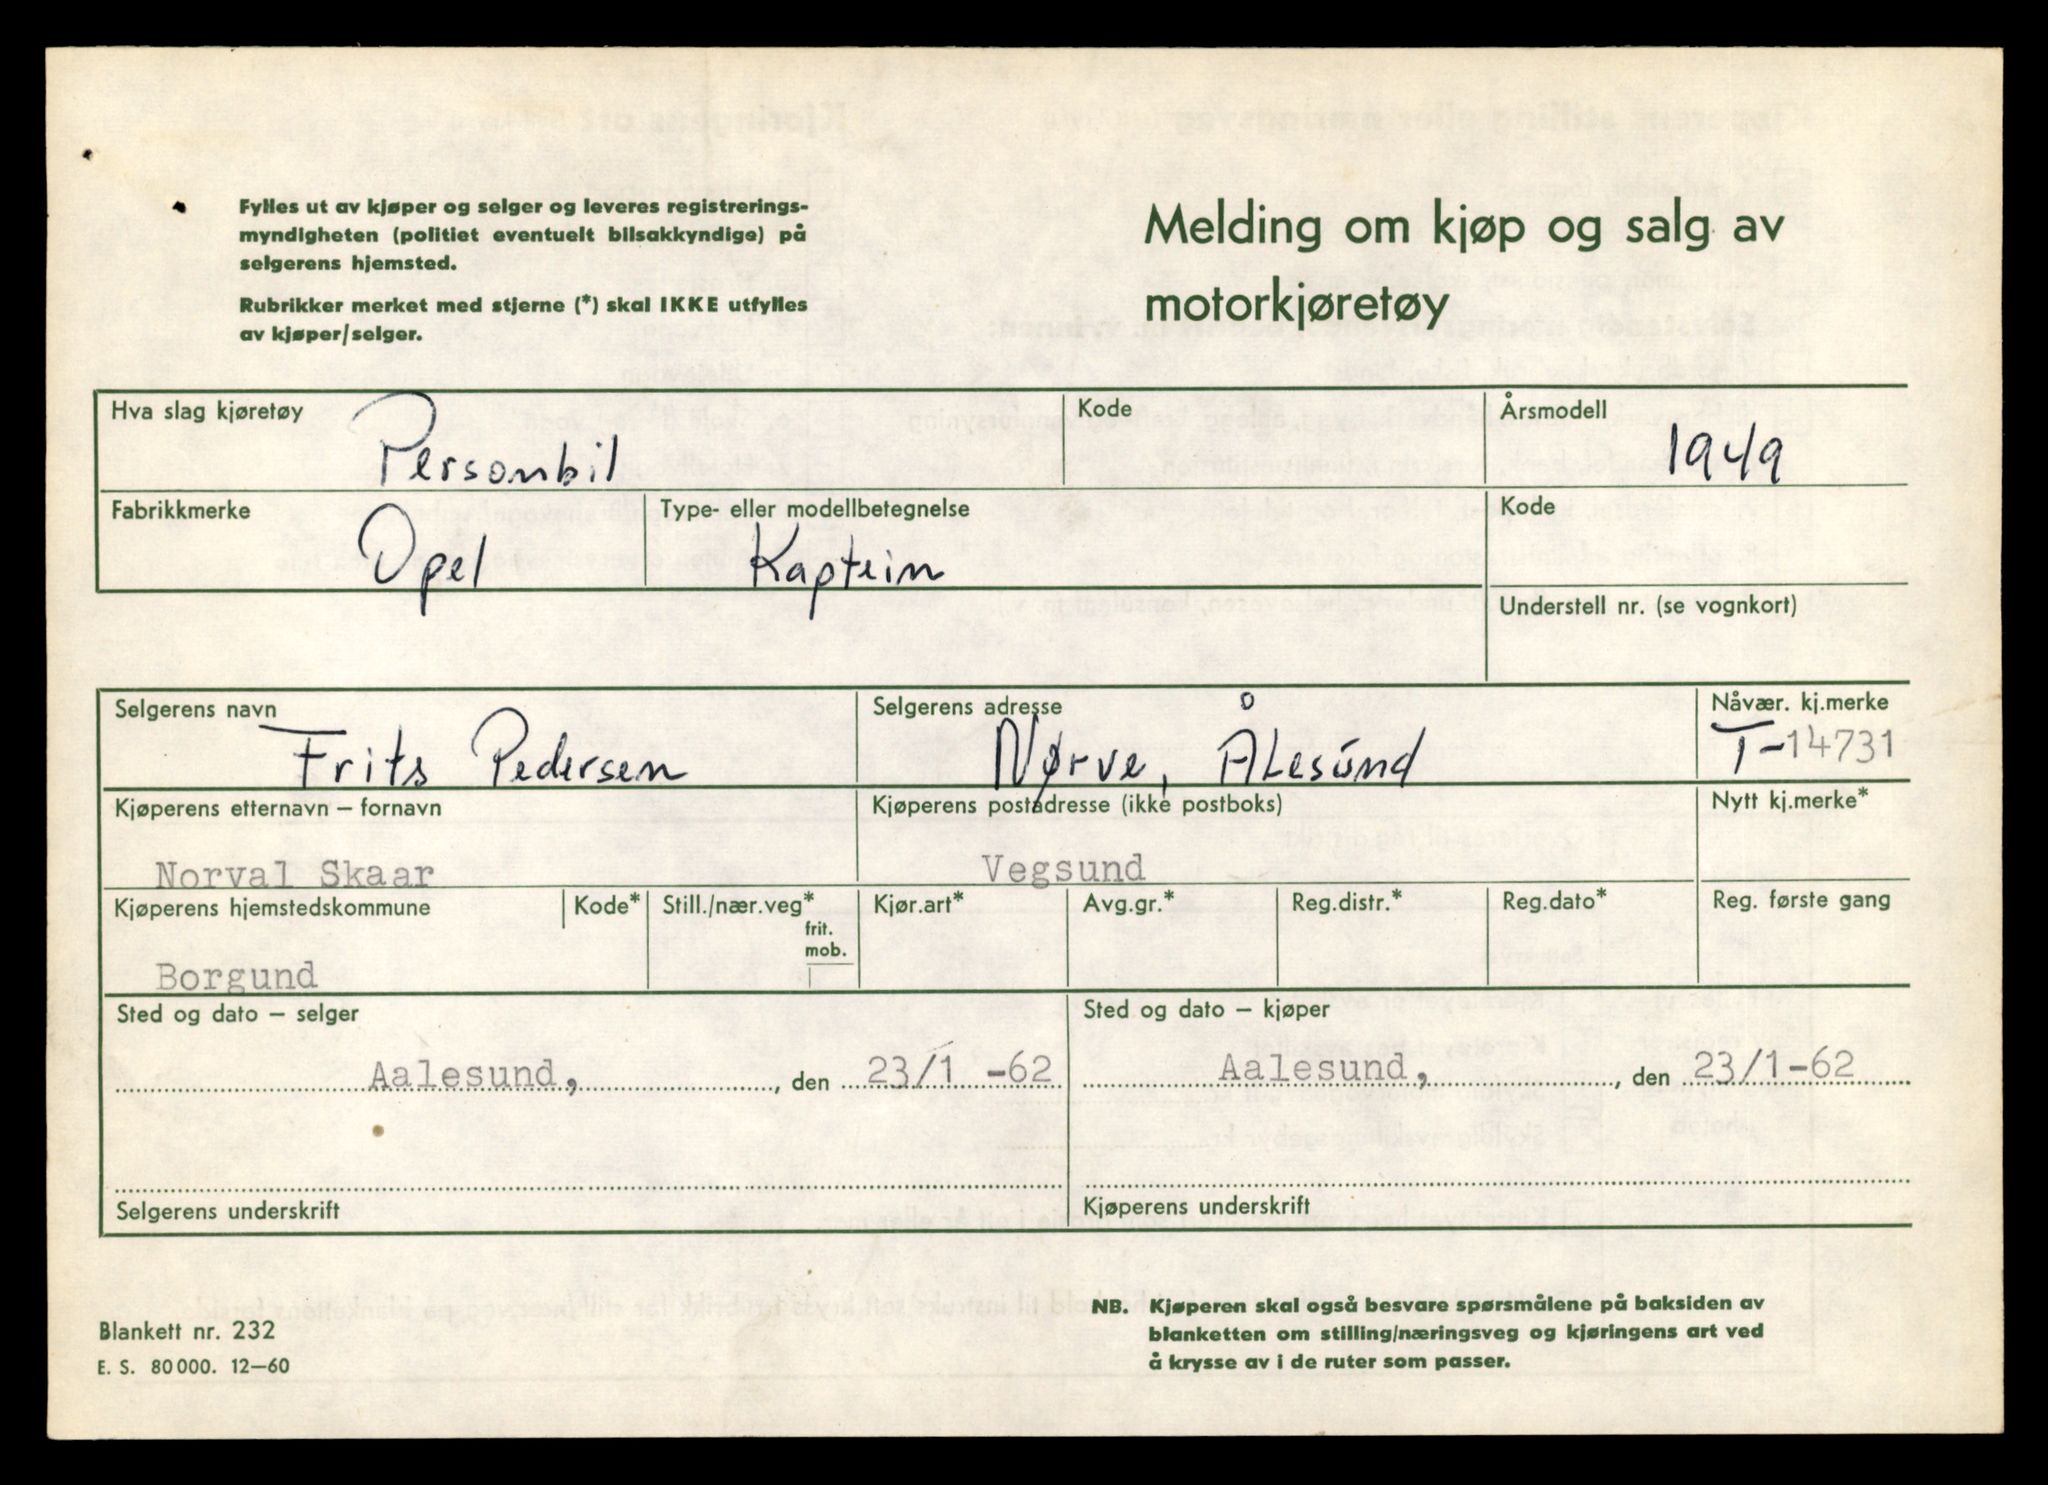 Fylles ut av kjøper og selger og leveres registrerings-
myndigheten (politiet eventuelt bilsakkyndige) på
selgerens hjemsted.
Rubrikker merket med stjerne (*) skal IKKE utfylles
av kjøper/selger.
Melding om kjøp og salg av
motorkjøretøy
Hva slag kjøretøy
Personbil
Kode
Årsmodell
1949
Fabrikkmerke
Opel
Type- eller modellbetegnelse
Kaptein
Kode
Understell nr. (se vognkort)
Selgerens navn
Frits Pedersen
Selgerens adresse
Nørve, Ålesund
Nåvær. kj.merke
T-14731
Kjøperens etternavn – fornavn
Norval Skaar
Kjøperens postadresse (ikke postboks)
Vegsund
Nytt kj.merke*
Kjøperens hjemstedskommune
Borgund
Kode*
Still./nær.veg*
frit.
mob.
Kjør.art*
Avg.gr.*
Reg.distr.*
Reg.dato*
Reg. første gang
Sted og dato – selger
Aalesund, , den 23/1 -62
Selgerens underskrift
Sted og dato – kjøper
Aalesund, , den 23/1-62
Kjøperens underskrift
Blankett nr. 232
E. S. 80 000. 12—60
NB. Kjøperen skal også besvare spørsmålene på baksiden av
blanketten om stilling/næringsveg og kjøringens art ved
å krysse av i de ruter som passer.